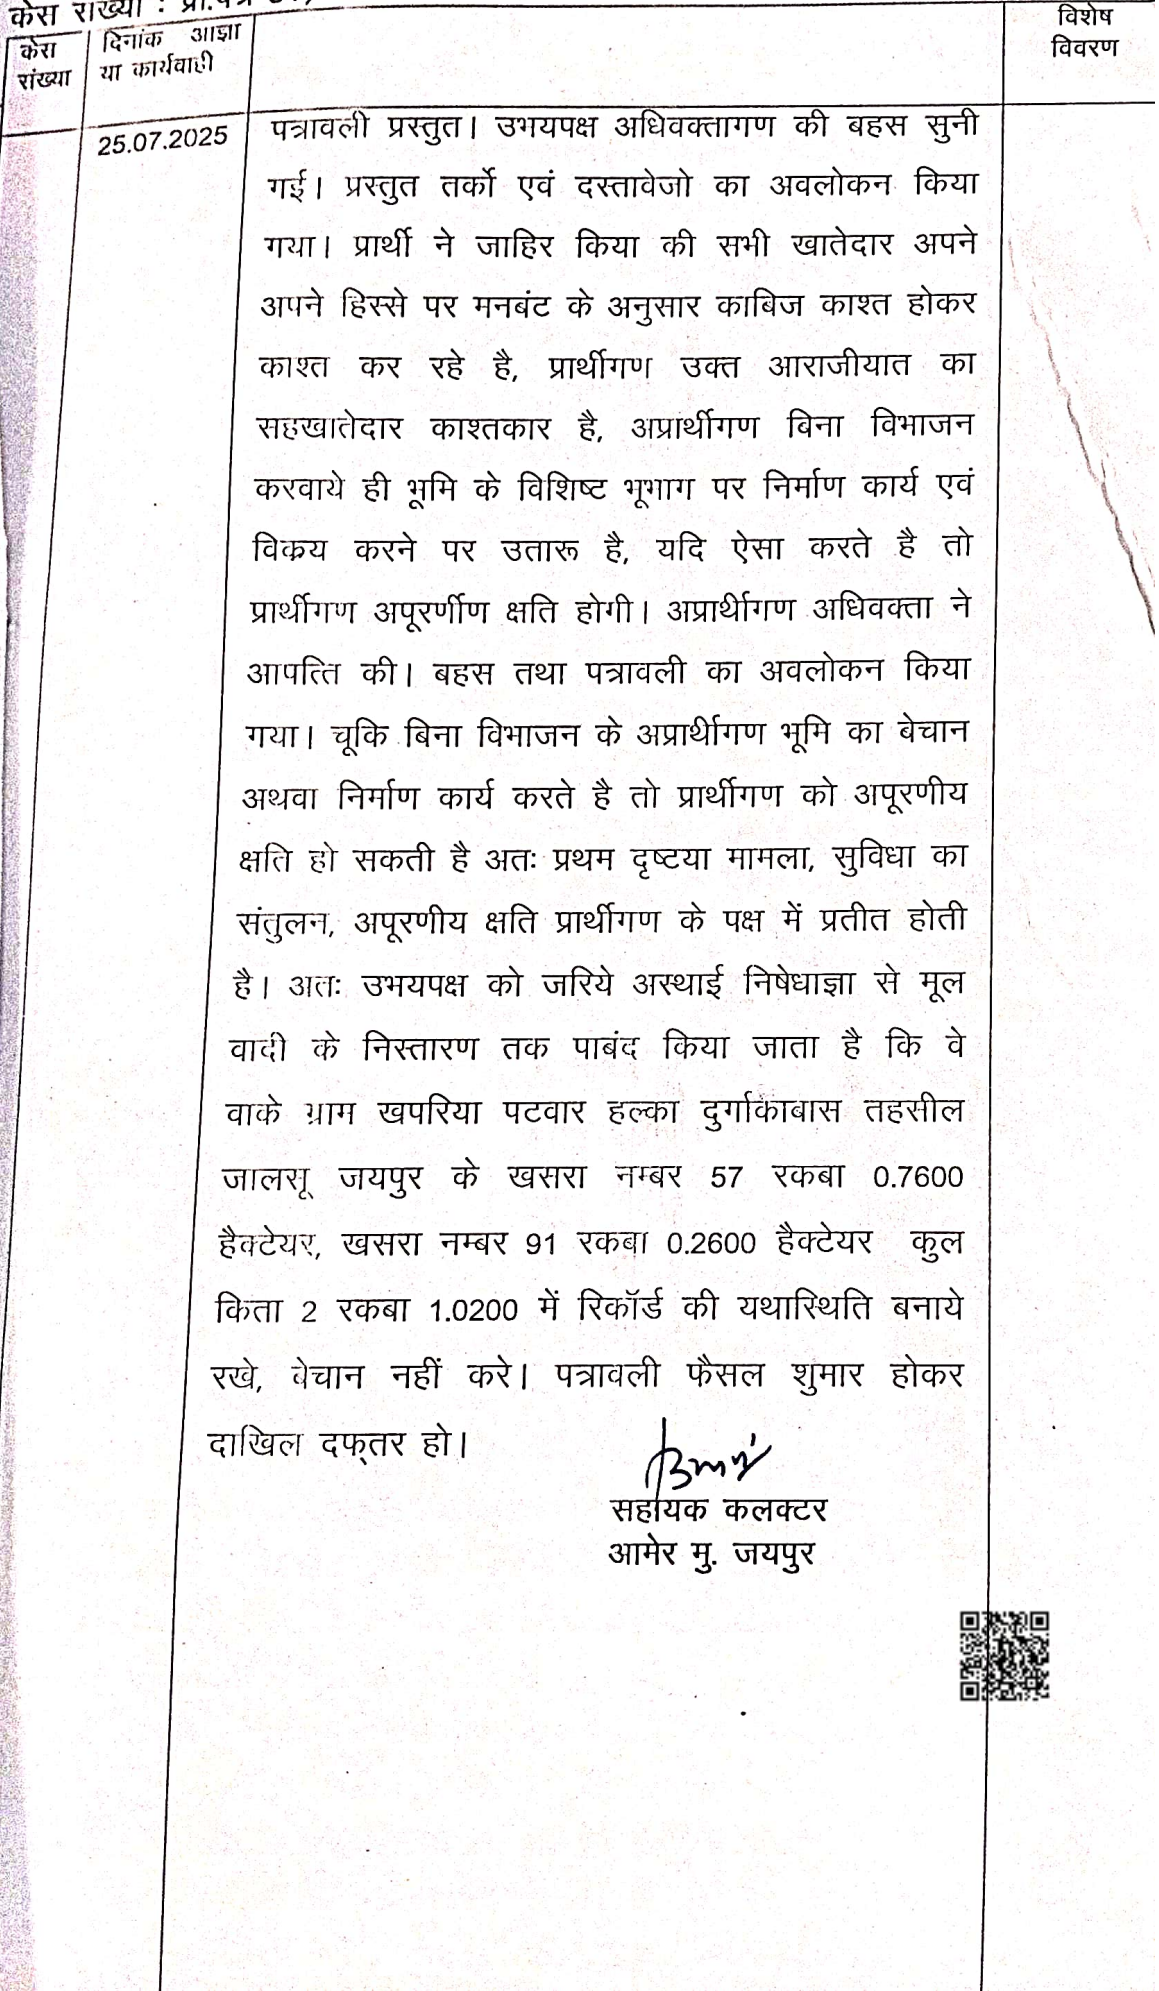 केस संख्या : प्रा.पत्र
केस संख्या
दिनांक आज्ञा या कार्यवाही
विशेष विवरण
25.07.2025
पत्रावली प्रस्तुत। उभयपक्ष अधिवक्तागण की बहस सुनी
गई। प्रस्तुत तर्को एवं दस्तावेजो का अवलोकन किया
गया। प्रार्थी ने जाहिर किया की सभी खातेदार अपने
अपने हिस्से पर मनबंट के अनुसार काबिज काश्त होकर
काश्त कर रहे है, प्रार्थीगण उक्त आराजीयात का
सहखातेदार काश्तकार है, अप्रार्थीगण बिना विभाजन
करवाये ही भूमि के विशिष्ट भूभाग पर निर्माण कार्य एवं
विक्रय करने पर उतारू है, यदि ऐसा करते है तो
प्रार्थीगण अपूरर्णीण क्षति होगी। अप्रार्थीगण अधिवक्ता ने
आपत्ति की। बहस तथा पत्रावली का अवलोकन किया
गया। चूकि बिना विभाजन के अप्रार्थीगण भूमि का बेचान
अथवा निर्माण कार्य करते है तो प्रार्थीगण को अपूरणीय
क्षति हो सकती है अतः प्रथम दृष्टया मामला, सुविधा का
संतुलन, अपूरणीय क्षति प्रार्थीगण के पक्ष में प्रतीत होती
है। अतः उभयपक्ष को जरिये अस्थाई निषेधाज्ञा से मूल
वादी के निस्तारण तक पाबंद किया जाता है कि वे
वाके ग्राम खपरिया पटवार हल्का दुर्गाकाबास तहसील
जालसू जयपुर के खसरा नम्बर 57 रकबा 0.7600
हैक्टेयर, खसरा नम्बर 91 रकबा 0.2600 हैक्टेयर कुल
किता 2 रकबा 1.0200 में रिकॉर्ड की यथास्थिति बनाये
रखे, बेचान नहीं करे। पत्रावली फैसल शुमार होकर
दाखिल दफ्तर हो।
सहायक कलक्टर
आमेर मु. जयपुर